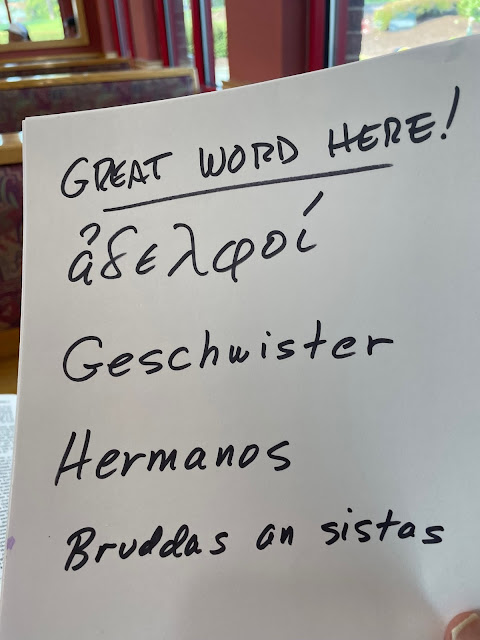 GREAT WORD HERE!
ἀδελφοί
Geschwister
Hermanos
Bruddas an sistas